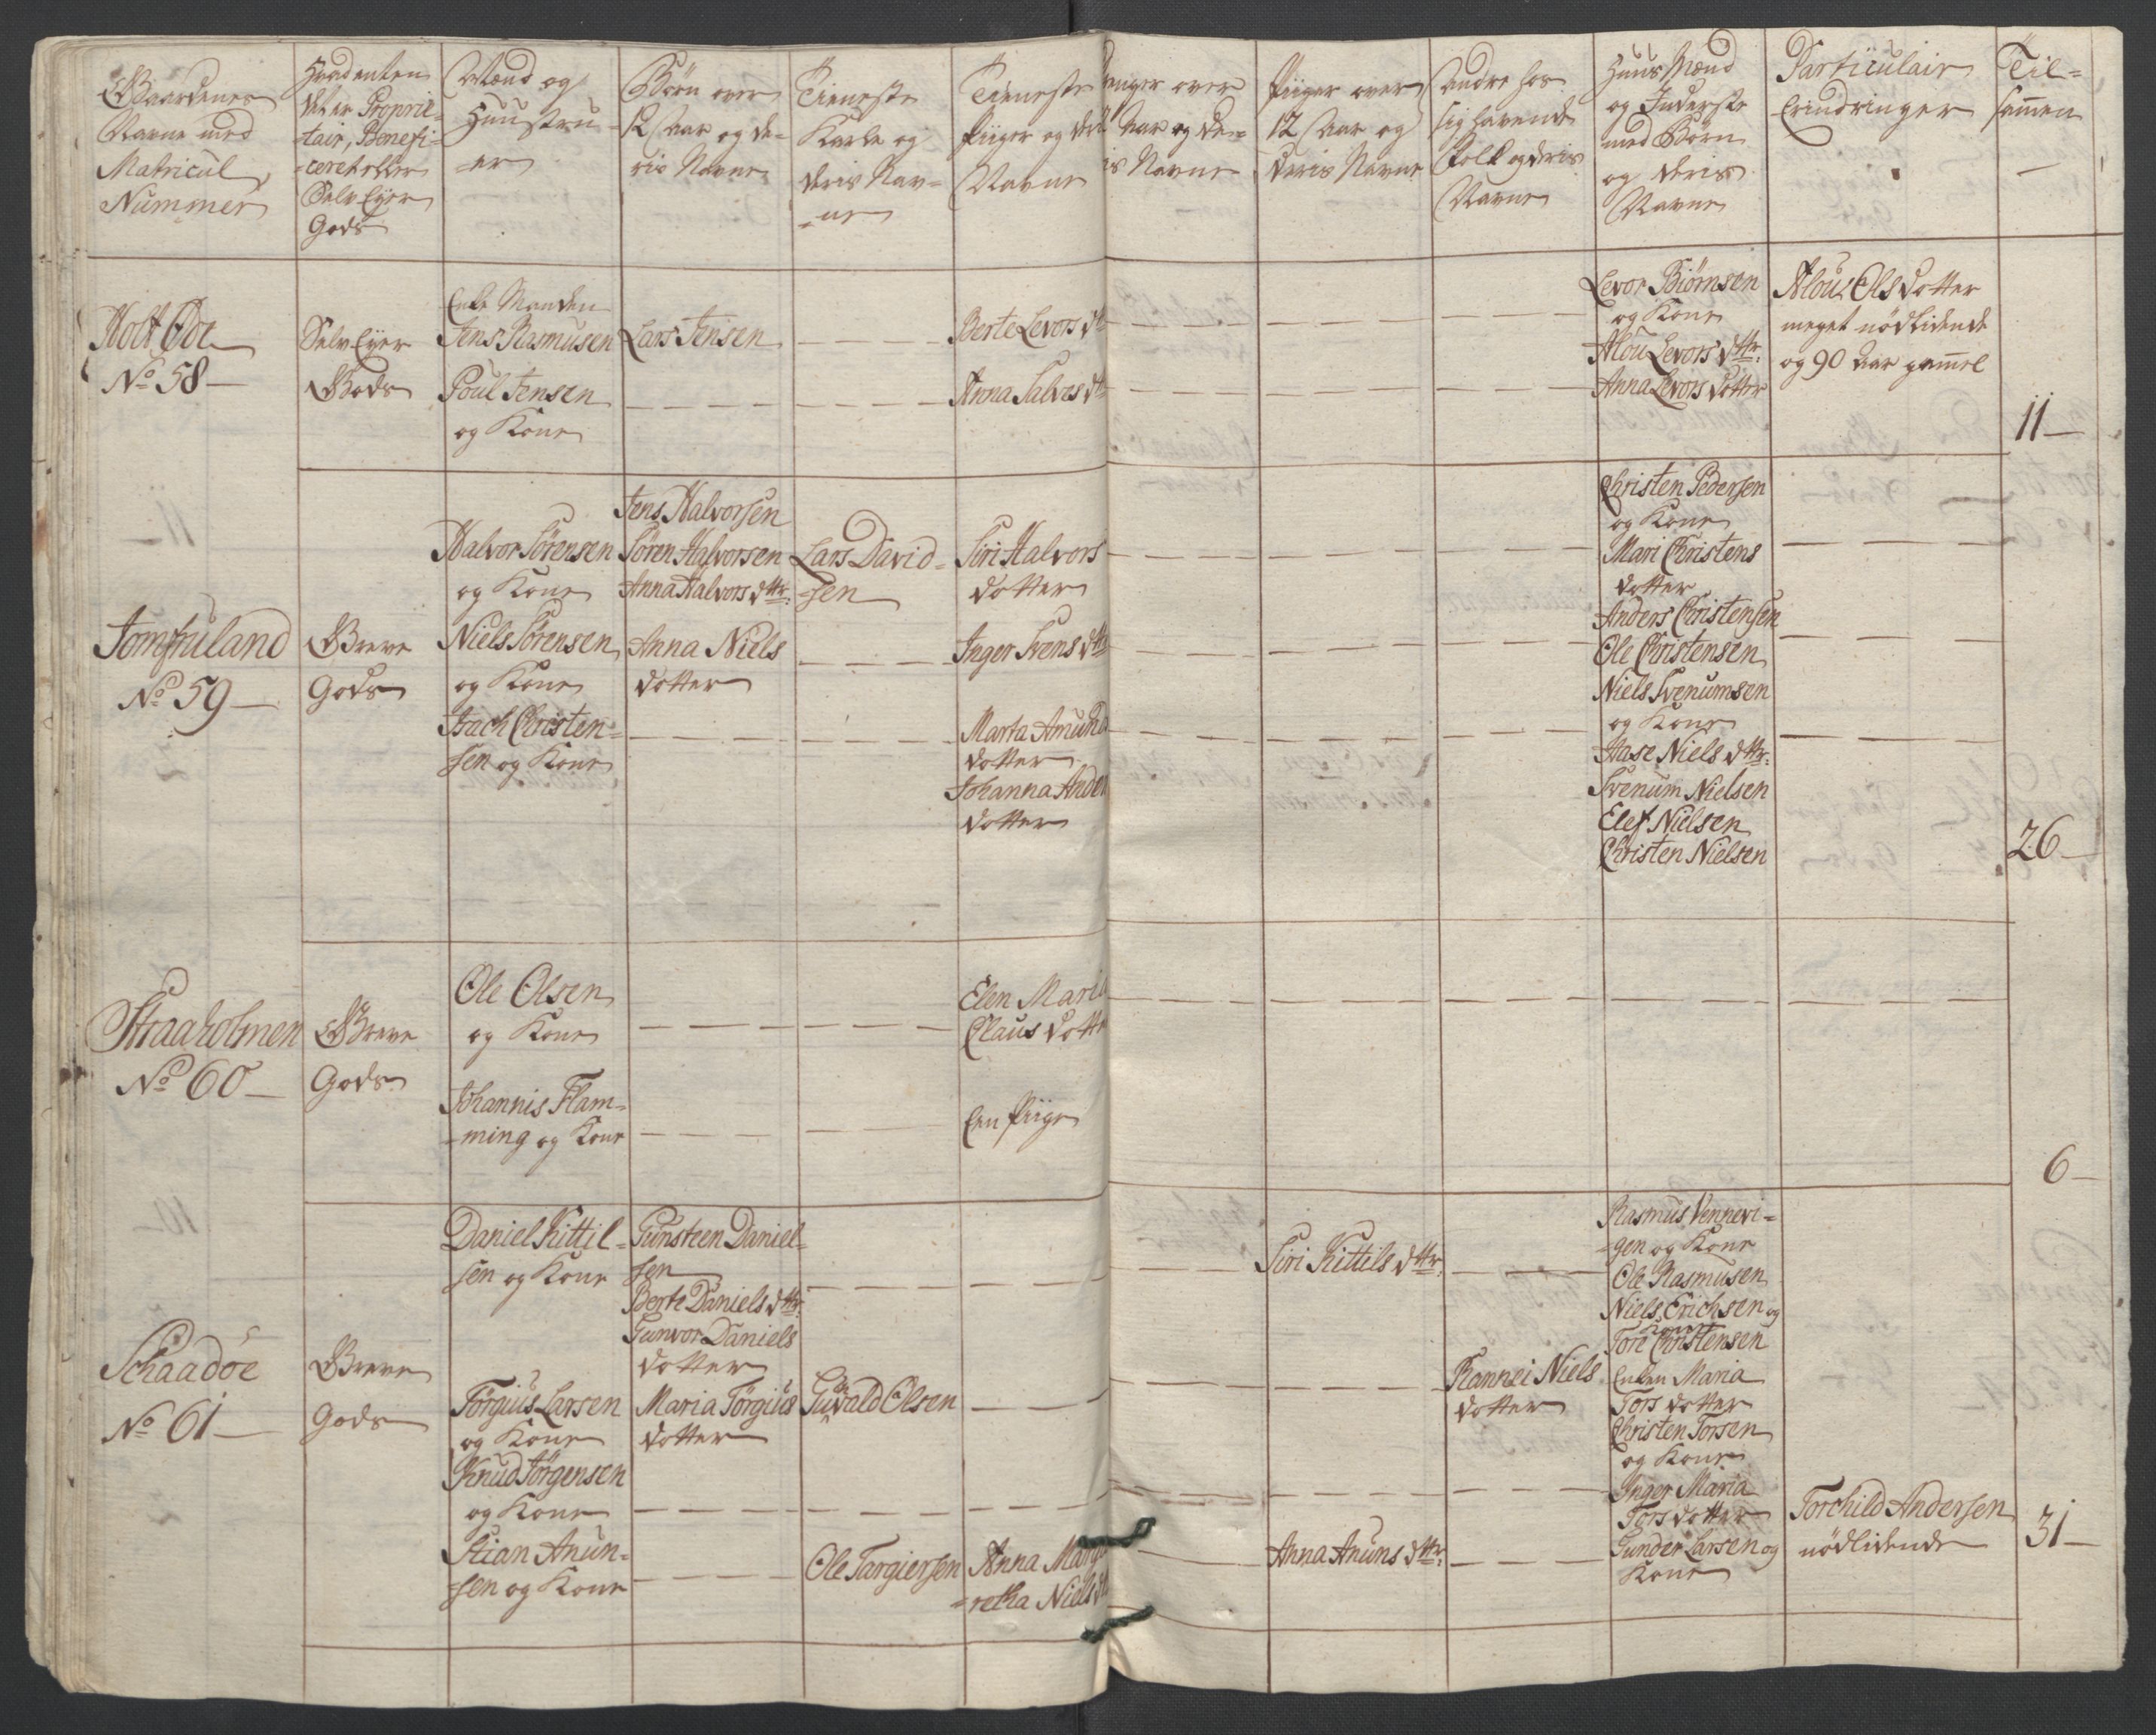 Gaardenes
Navne med
Matricul
Nummer
Hvad enten
det er Proprie-
-tair, Benefi-
-ceret eller
Selv Eyer
Gods
Mænd og
Huustru-
-er
Børn over
12 Aar og de-
ris Navne
Tieneste
Karle og
deris Nav-
-ne
Tieneste
Piiger og deris
Navne
Drenger over
12 Aar og der-
is Navne
Piiger over
12 Aar og
deris Navne
Andre hos
sig havende
Folk og deris
Navne
Huus Mænd
og Inderste
med Børn
og deris
Navne
Particulair
Erindringer
Til-
sammen
Holt Øde
No 58
Selv Eyer
Gods
Enke Manden
Jens Rasmusen
Poul Jensen
og Kone
Lars Jensen
Berte Levors dtr
Anna Salves dtr
Levor Biørnsen
og Kone
Alou Levors dttr.
Anna Levors dotter
Alou Ols dotter
meget nödlidende
og 90 Aar gammel
11
Jomfruland
No 59
Greve
Gods
Halvor Sørensen
og Kone
Niels Sørensen
og Kone
Isach Christen-
sen og Kone
Jens Halvorsen
Søren Halvorsen
Anna Halvors dttr.
Anna Niels
dotter
Lars David-
-sen
Siri Halvors
dotter
Inger Svens dttr
Marta Amunds
dotter
Johanna Anders
dotter
Christen Pedersen
og Kone
Mari Christens
dotter
Anders Christensen
Ole Christensen
Niels Svenumsen
og Kone
Aase Niels dttr.
Svenum Nielsen
Elef Nielsen
Christen Nielsen
26
Straaholmen
No 60
Greve
Gods
Ole Olsen
og Kone
Johannis Flam-
-ming og Kone
Elen Maria
Claus dotter
Een Piige
6
Schaadøe
No 61
Greve
Gods
Daniel Kittil-
sen og Kone
Törgius Larsen
og Kone
Knud Jörgensen
og Kone
Stian Anun-
-sen og Kone
Gunsteen Daniel-
sen
Berte Daniels dttr.
Gunvor Daniels
dotter
Maria Törgius
dotter
Guvald Olsen
Ole Targiersen
Anna Marga-
-retha Niels dtr
Siri Kittils dttr.
Anna Anuns dttr.
Rannei Niels
dotter
Rasmus Vennevi-
-gen og Kone
Ole Rasmusen
Niels Erichsen og
Kone
Tore Christensen
Enken Maria
Tors dotter
Christen Torsen
og Kone
Inger Maria
Tors dotter
Gunder Larsen og
Kone
Torchild Andersen
nödlidende
31